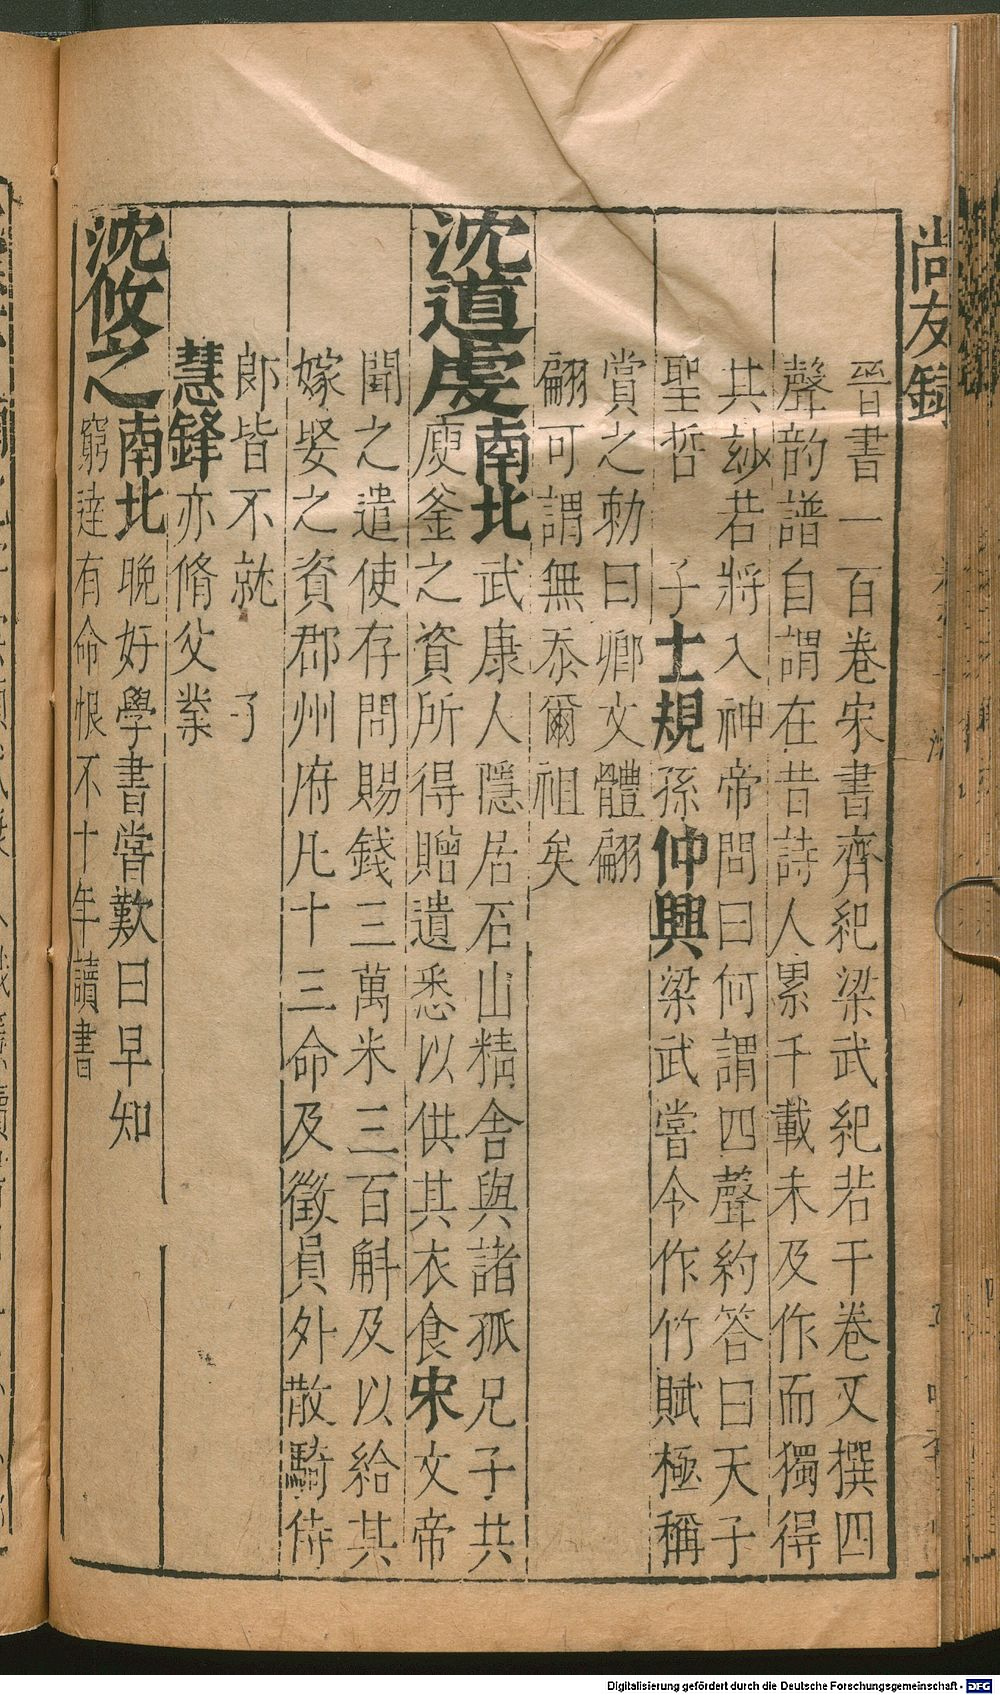 尚友錄
晉書一百卷宋書齊紀梁武紀若干卷又撰四
聲韵譜自謂在昔詩人累千載未及作而獨得
其玅若將入神帝問曰何謂四聲約答曰天子
聖哲 子士規孫仲興梁武嘗令作竹賦極稱
賞之勅曰卿文體翩
翩可謂無忝爾祖矣
沈道虔南北武康人隱居石山精舍與諸孤兄子共
庾釜之資所得贈遺悉以供其衣食宋文帝
聞之遣使存問賜錢三萬米三百斛及以給其
嫁娶之資郡州府凡十三命及徵員外散騎侍
郎皆不就 子
慧鋒亦脩父業
沈攸之南北晚好學書嘗歎曰早知
窮達有命恨不十年讀書
Digitalisierung gefördert durch die Deutsche Forschungsgemeinschaft - DFG